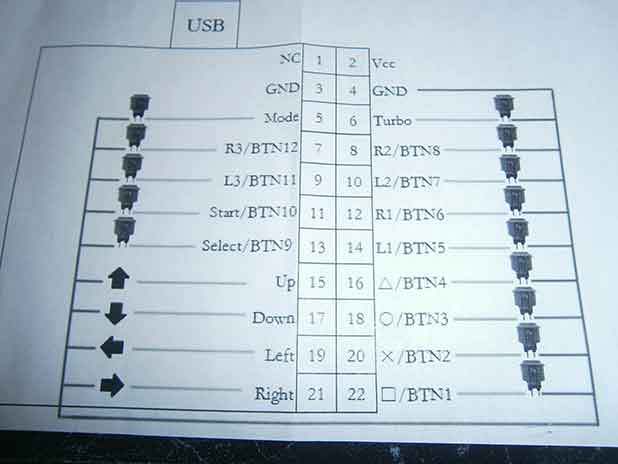 USB
NC 1 2 Vcc
GND 3 4 GND
Mode 5 6 Turbo
R3/BTN12 7 8 R2/BTN8
L3/BTN11 9 10 L2/BTN7
Start/BTN10 11 12 R1/BTN6
Select/BTN9 13 14 L1/BTN5
Up 15 16 △/BTN4
Down 17 18 ○/BTN3
Left 19 20 ×/BTN2
Right 21 22 □/BTN1